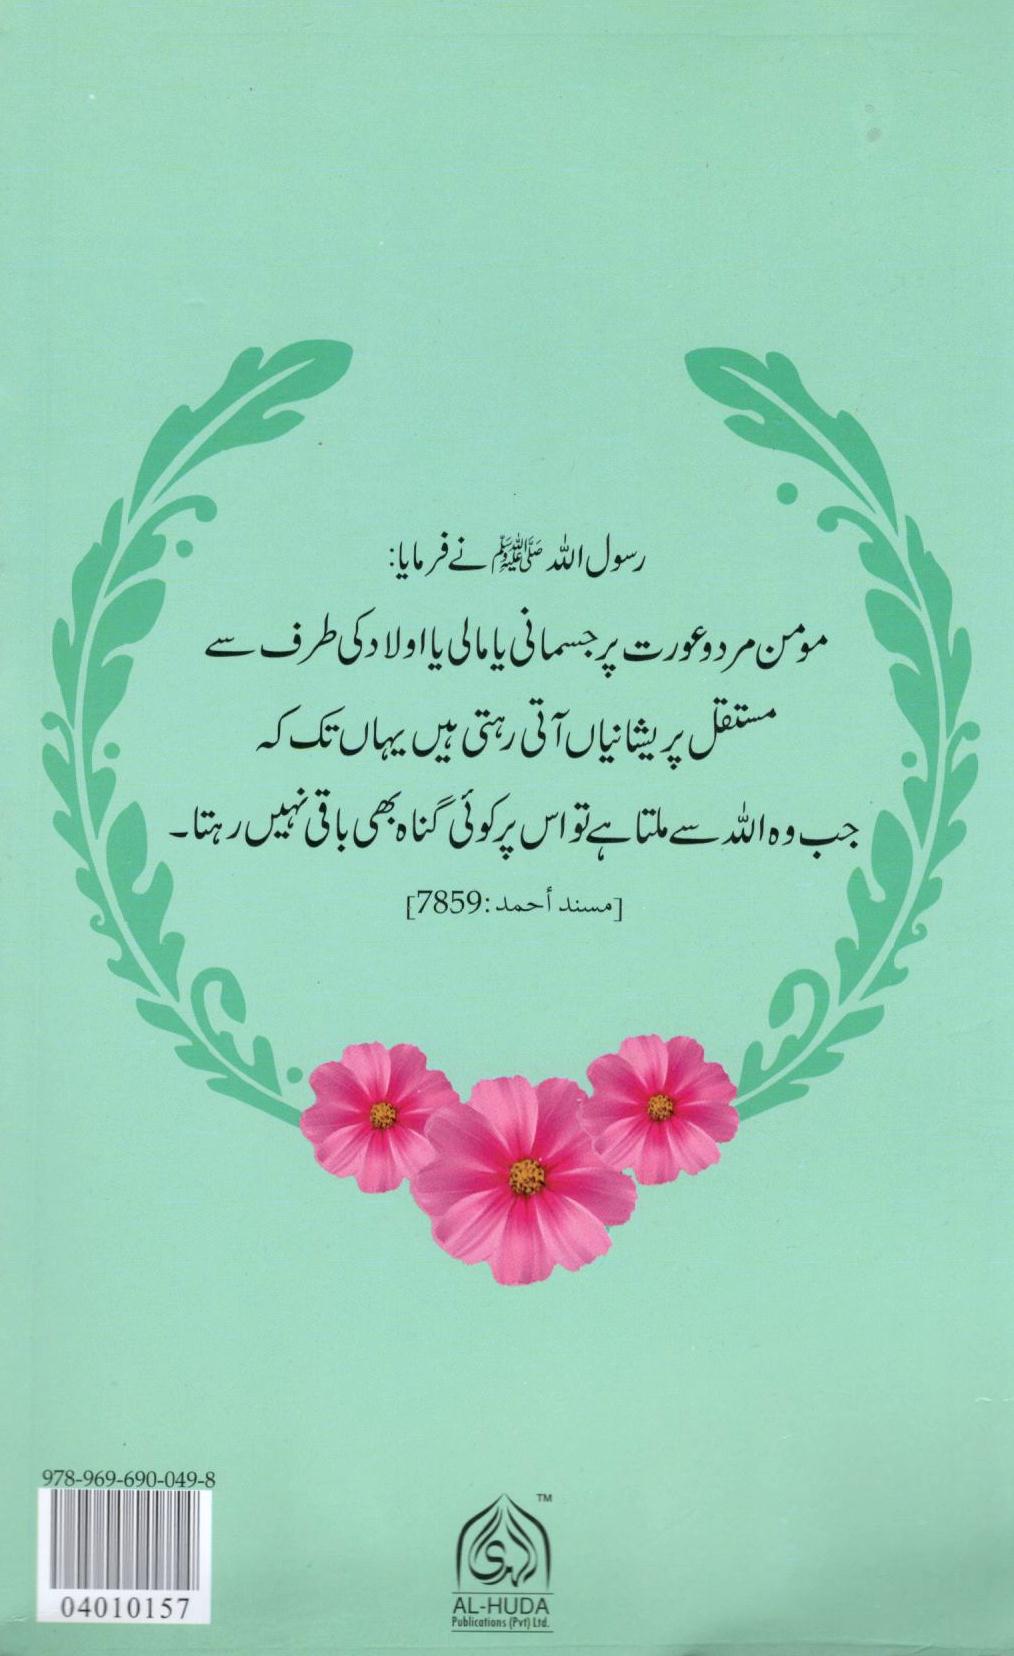 رسول اللہ ﷺ نے فرمایا:
مومن مرد و عورت پر جسمانی یا مالی یا اولاد کی طرف سے
مستقل پریشانیاں آتی رہتی ہیں یہاں تک کہ
جب وہ اللہ سے ملتا ہے تو اس پر کوئی گناہ بھی باقی نہیں رہتا۔
[مسند أحمد:7859]
978-969-690-049-8
04010157
الهدى
TM
AL-HUDA
Publications (Pvt) Ltd.